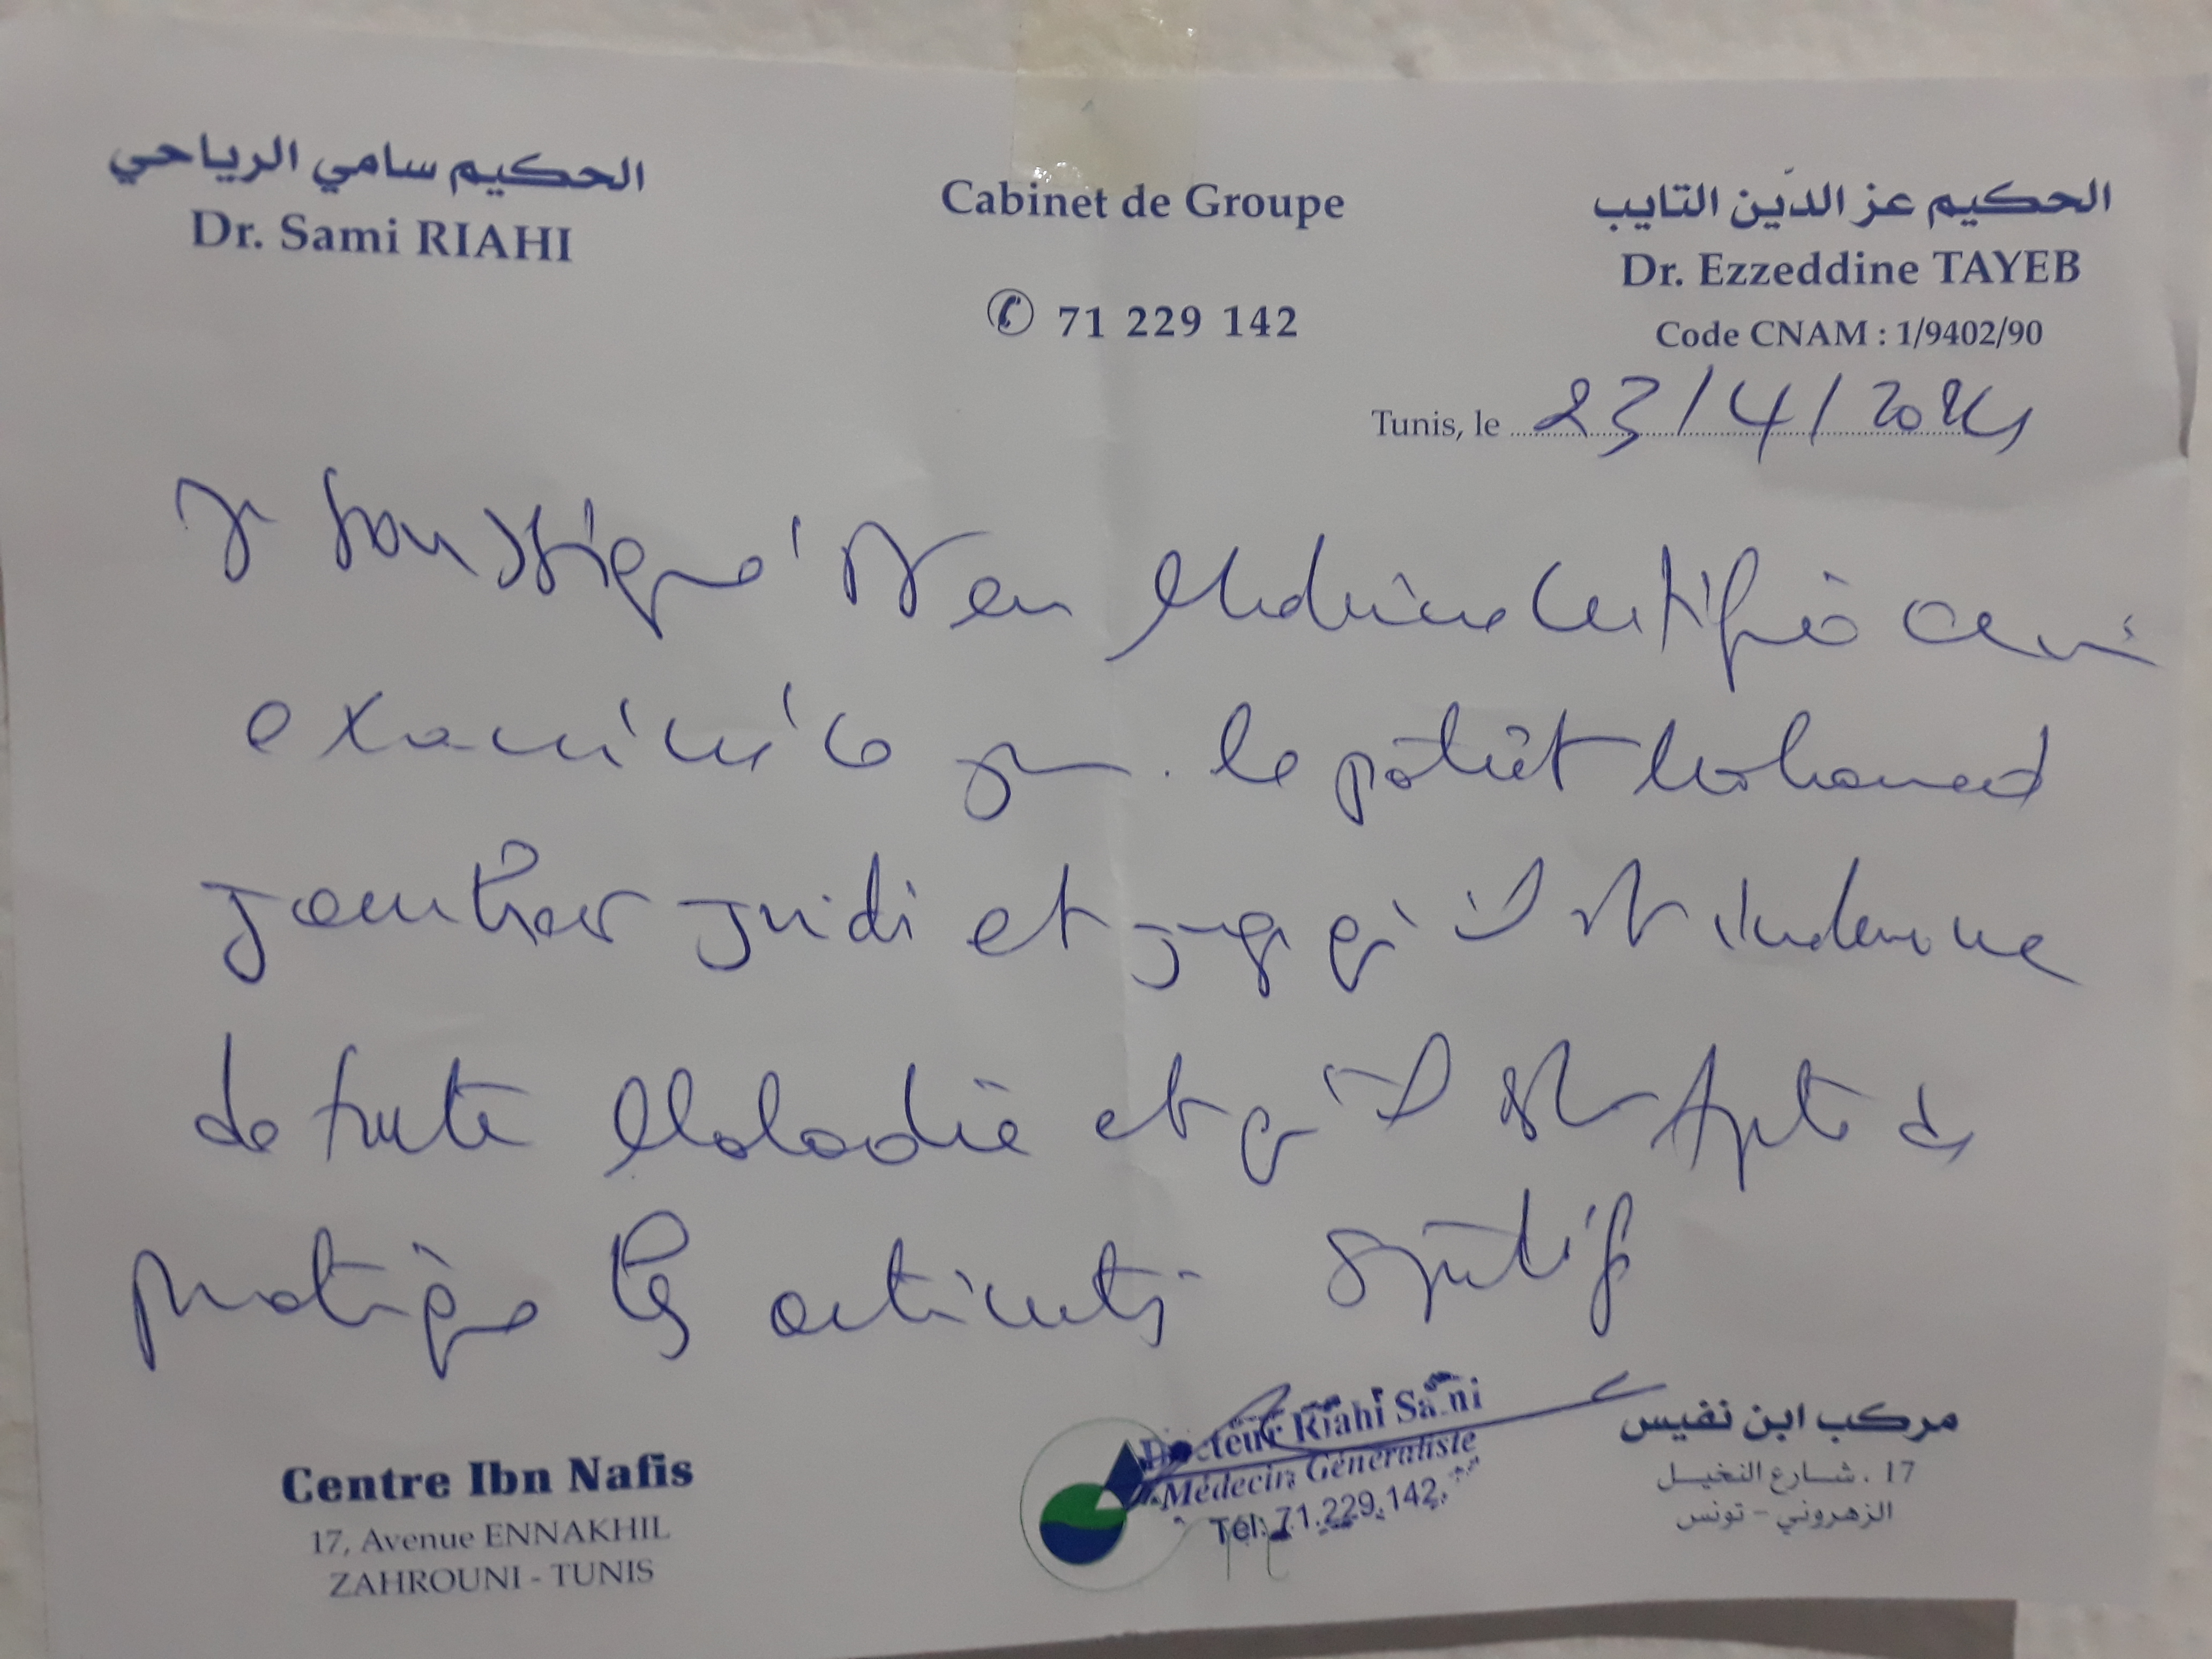 الحكيم سامي الرياحي
Dr. Sami RIAHI
Cabinet de Groupe
71 229 142
الحكيم عز الدّين التايب
Dr. Ezzeddine TAYEB
Code CNAM : 1/9402/90
Tunis, le 23/4/2024
Je soussigné Dr en Médecine Certifie avoir
examiné ce jour le patient Mohamed
Jouider et juge qu'il est indemne
de toute Maladie et qu'il est Apte à
pratiquer les activités sportif
Docteur Riahi Sami
Médecin Généraliste
Tél: 71.229.142
Centre Ibn Nafis
17, Avenue ENNAKHIL
ZAHROUNI - TUNIS
مركب ابن نفيس
17 ، شارع النخيل
الزهروني - تونس